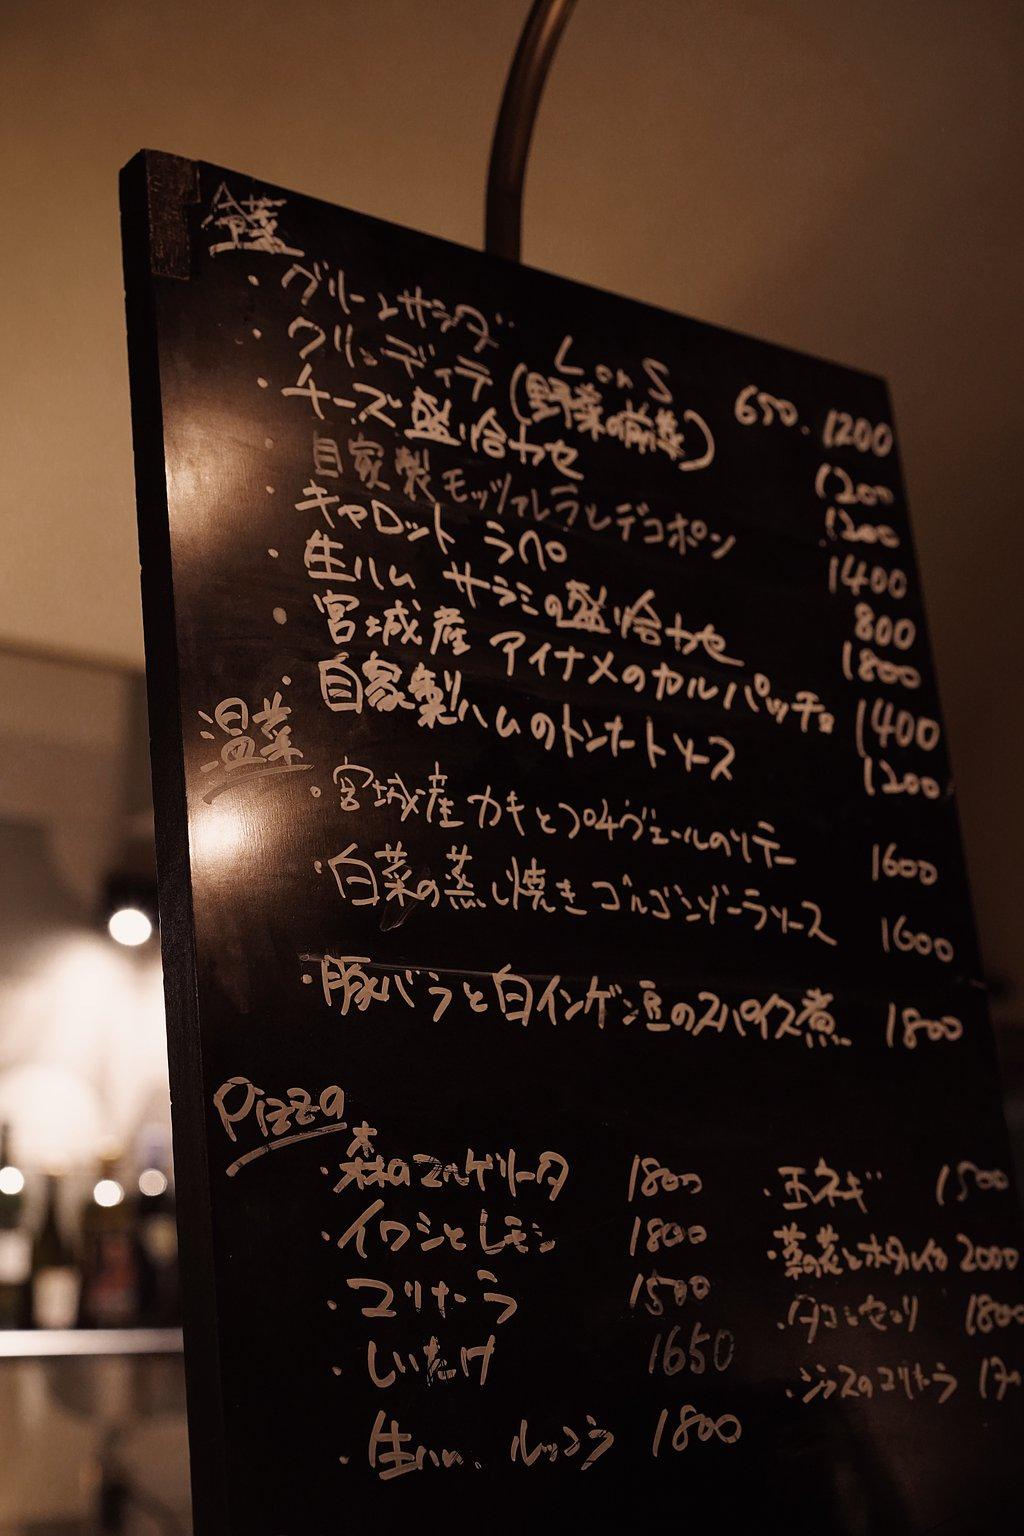 冷菜
・グリーンサラダ L or S 650. 1200
・クリュディテ (野菜の前菜) 1200
・チーズ盛り合わせ 1200
・自家製モッツァレラとデコポン 1400
キャロットラペ 800
・生ハム サラミの盛り合わせ 1800
・宮城産 アイナメのカルパッチョ 1400
・自家製ハムのトンナートソース 1200
温菜
・宮城産カキとプチヴェールのソテー 1600
・白菜の蒸し焼き ゴルゴンゾーラソース 1600
・豚バラと白インゲン豆のスパイス煮 1800
Pizza
・森のマルゲリータ 1800
・イワシとレモン 1800
・マリナーラ 1500
・しいたけ 1650
・生ハム、ルッコラ 1800
・玉ネギ 1500
・菜の花とホタルイカ 2000
・タコとセリ 1800
・シラスのマリナーラ